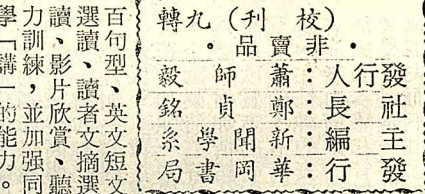 （校刊）九轉
・非賣品・
發行人：蕭師毅
社長：鄭貞銘
主編：新聞學系
發行：華岡書局
百句型、英文短文
選讀、讀者文摘選
讀、影片欣賞、聽
力訓練，並加强同
學「講」的能力。